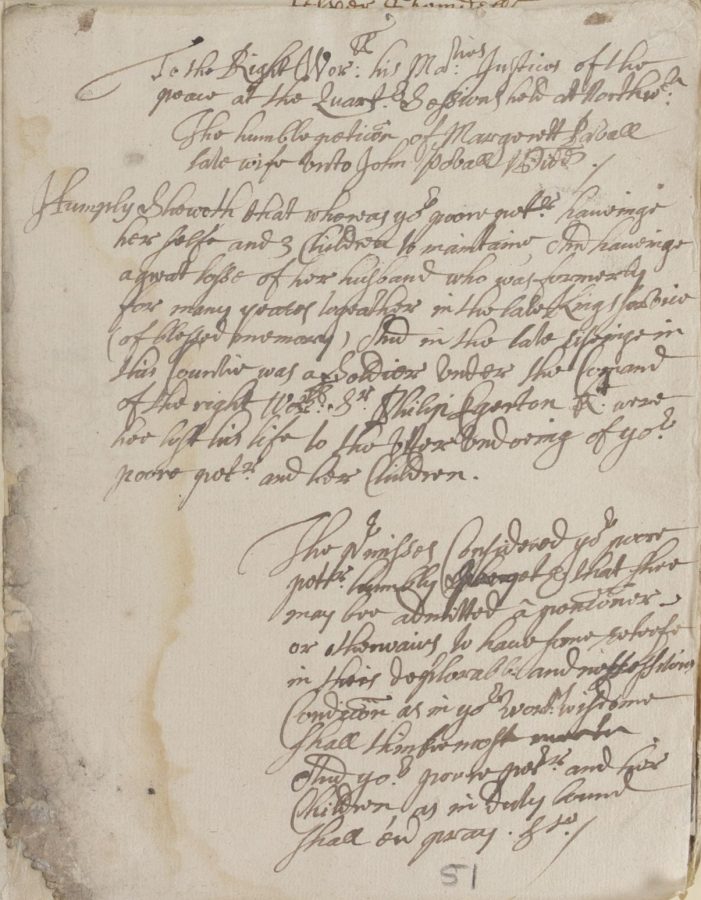 To the Right Wor:ll his Ma:ties Justices of the
peace at the Quart:r Sessions held at Northw:ch
The humble peticon of Margerett
late wife unto John Widd /
Humply Sheweth that whereas yo:r poore pet:r haveinge
her selfe and 3 Children to maintaine And haveinge
a great losse of her husband who was formerly
for many yeares togeather in the late Kings service
(of blessed memory) And in the late riseinge in
this Countie was a Soldier under the Comand
of the right Wor:ll S:r Phillip Egerton K:t were
hee lost his life to the utter undoeing of yo:r
poore pet:r and her Children.
The p:rmisses Considered yo:r poore
pet:r humbly that shee
may bee admitted a pencioner
or otherwaies to have some releefe
in theis deplorable and nessessitous
Condicon as in yo:r wor:ps wisdome
shall thinke most
And yo:r poore pet:r and her
Children as in duty bound
shall ev'r pray. &c. /
51